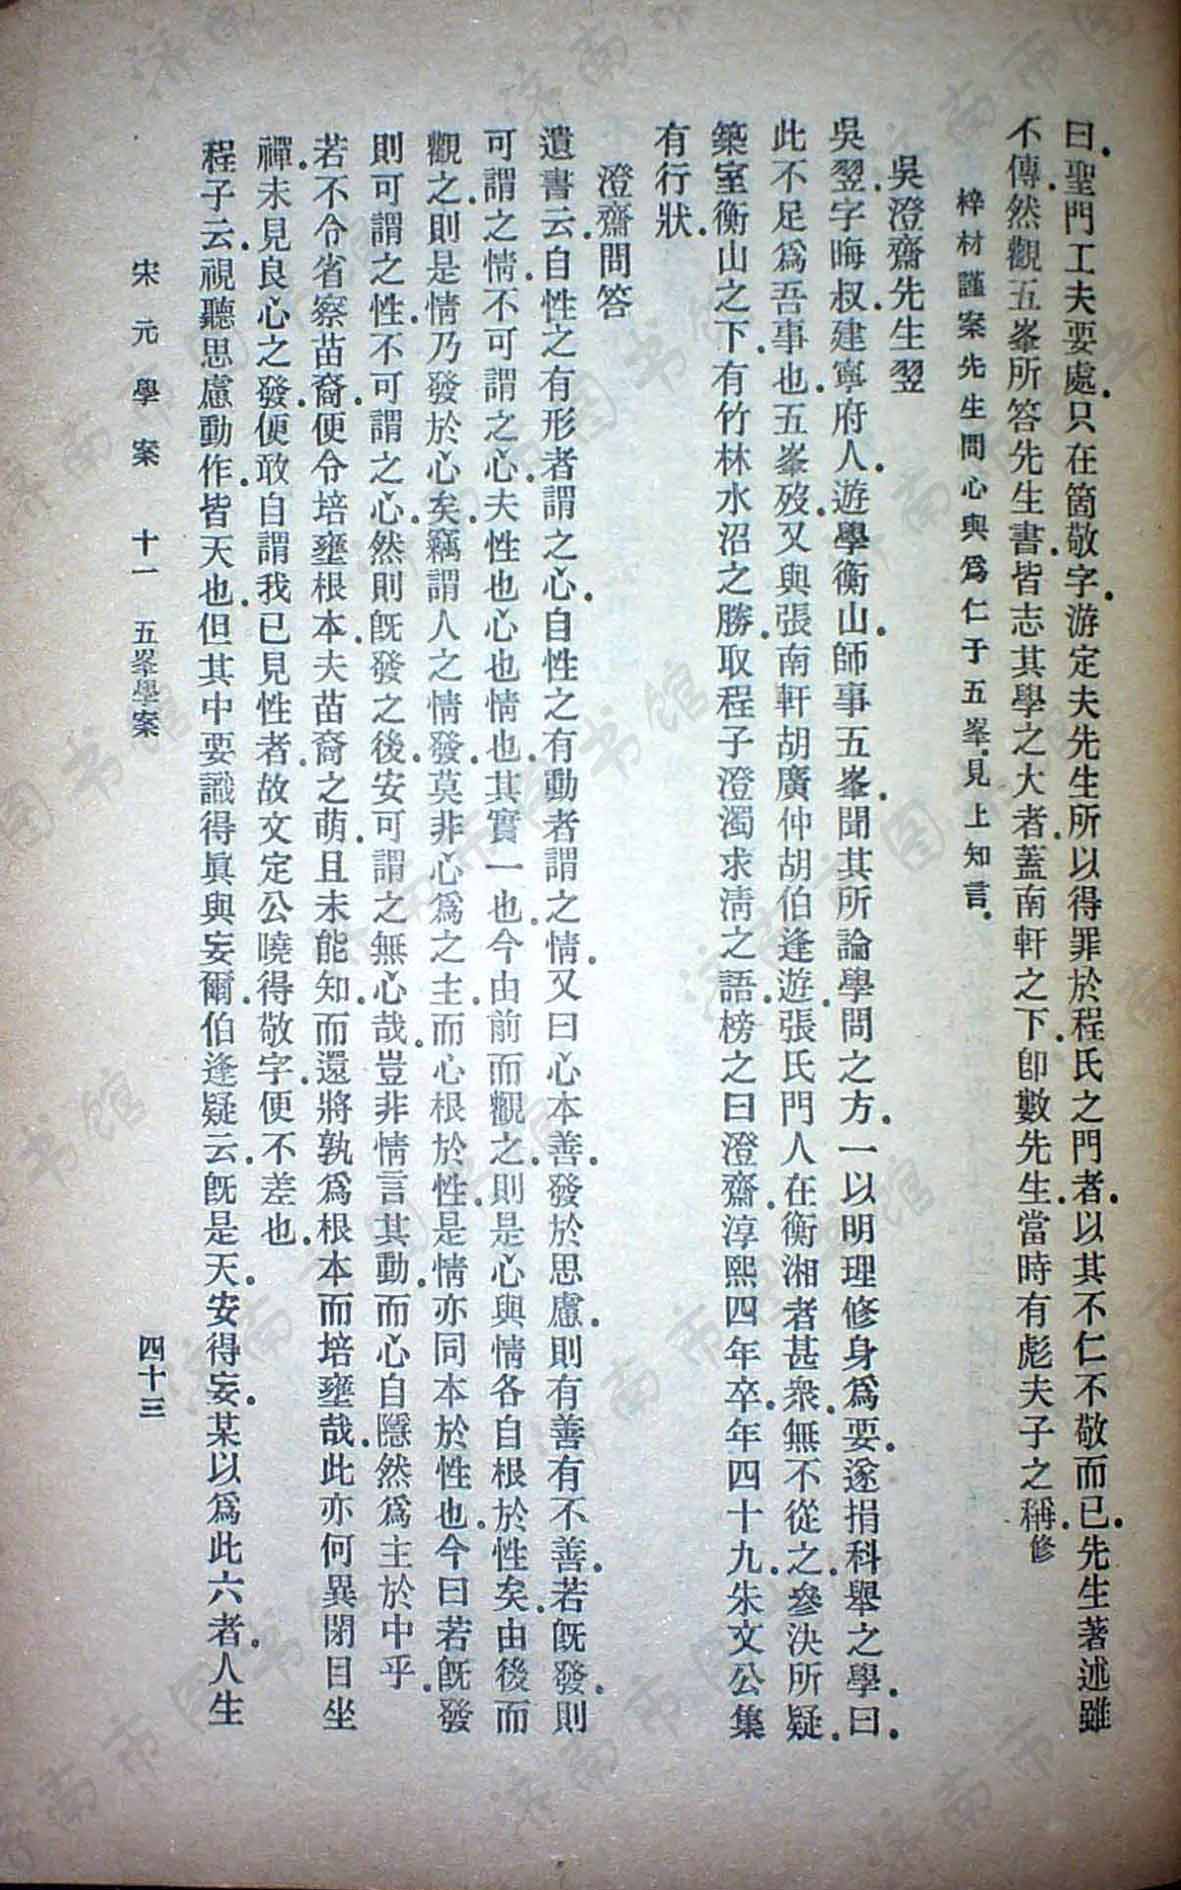 曰。聖門工夫要處。只在箇敬字。游定夫先生所以得罪於程氏之門者。以其不仁不敬而已。先生著述雖
不傳。然觀五峯所答先生書。皆志其學之大者。蓋南軒之下。卽數先生。當時有彪夫子之稱。修
梓材謹案先生問心與爲仁于五峯。見上知言。
吳澄齋先生翌
吳翌。字晦叔。建寧府人。遊學衡山。師事五峯。聞其所論學問之方。一以明理修身爲要。遂捐科舉之學。曰。
此不足爲吾事也。五峯歿。又與張南軒胡廣仲胡伯逢遊。張氏門人。在衡湘者甚衆。無不從之。參決所疑。
築室衡山之下。有竹林水沼之勝。取程子澄濁求淸之語。榜之曰澄齋。淳熙四年卒。年四十九。朱文公集
有行狀。
澄齋問答
遺書云。自性之有形者謂之心。自性之有動者謂之情。又曰心本善。發於思慮。則有善有不善。若旣發。則
可謂之情。不可謂之心。夫性也心也情也。其實一也。今由前而觀之。則是心與情各自根於性矣。由後而
觀之。則是情乃發於心矣。竊謂人之情發。莫非心爲之主。而心根於性。是情亦同本於性也。今曰若旣發
則可謂之性。不可謂之心。然則旣發之後。安可謂之無心哉。豈非情言其動。而心自隱然爲主於中乎。
若不令省察苗裔。便令培壅根本。夫苗裔之萌。且未能知。而還將孰爲根本而培壅哉。此亦何異閉目坐
禪。未見良心之發。便敢自謂我已見性者。故文定公曉得敬字。便不差也。
程子云。視聽思慮動作。皆天也。但其中要識得眞與妄爾。伯逢疑云。旣是天。安得妄。某以爲此六者。人生
宋元學案 十一 五峯學案 四十三